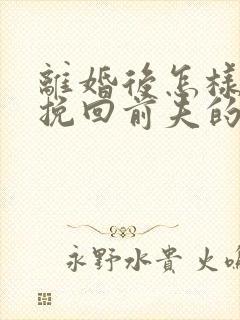 離婚後怎樣
挽回前夫的
永野水貴 火